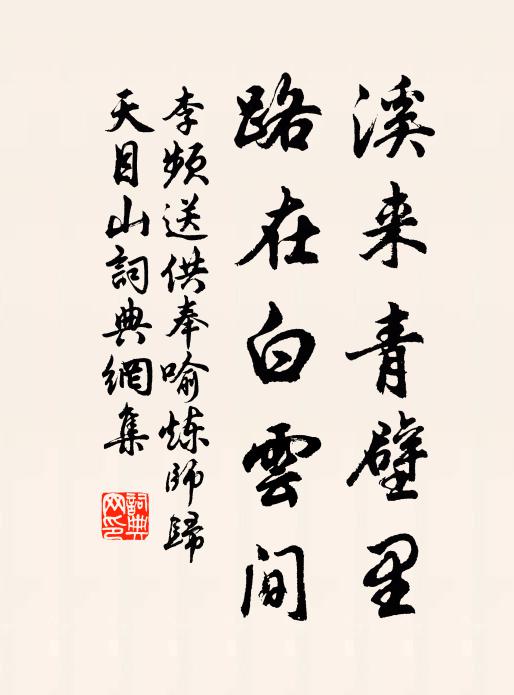 溪来青壁里
路在白雲间
李频送供奉喻炼师歸
天目山詞典網集
詞典网印